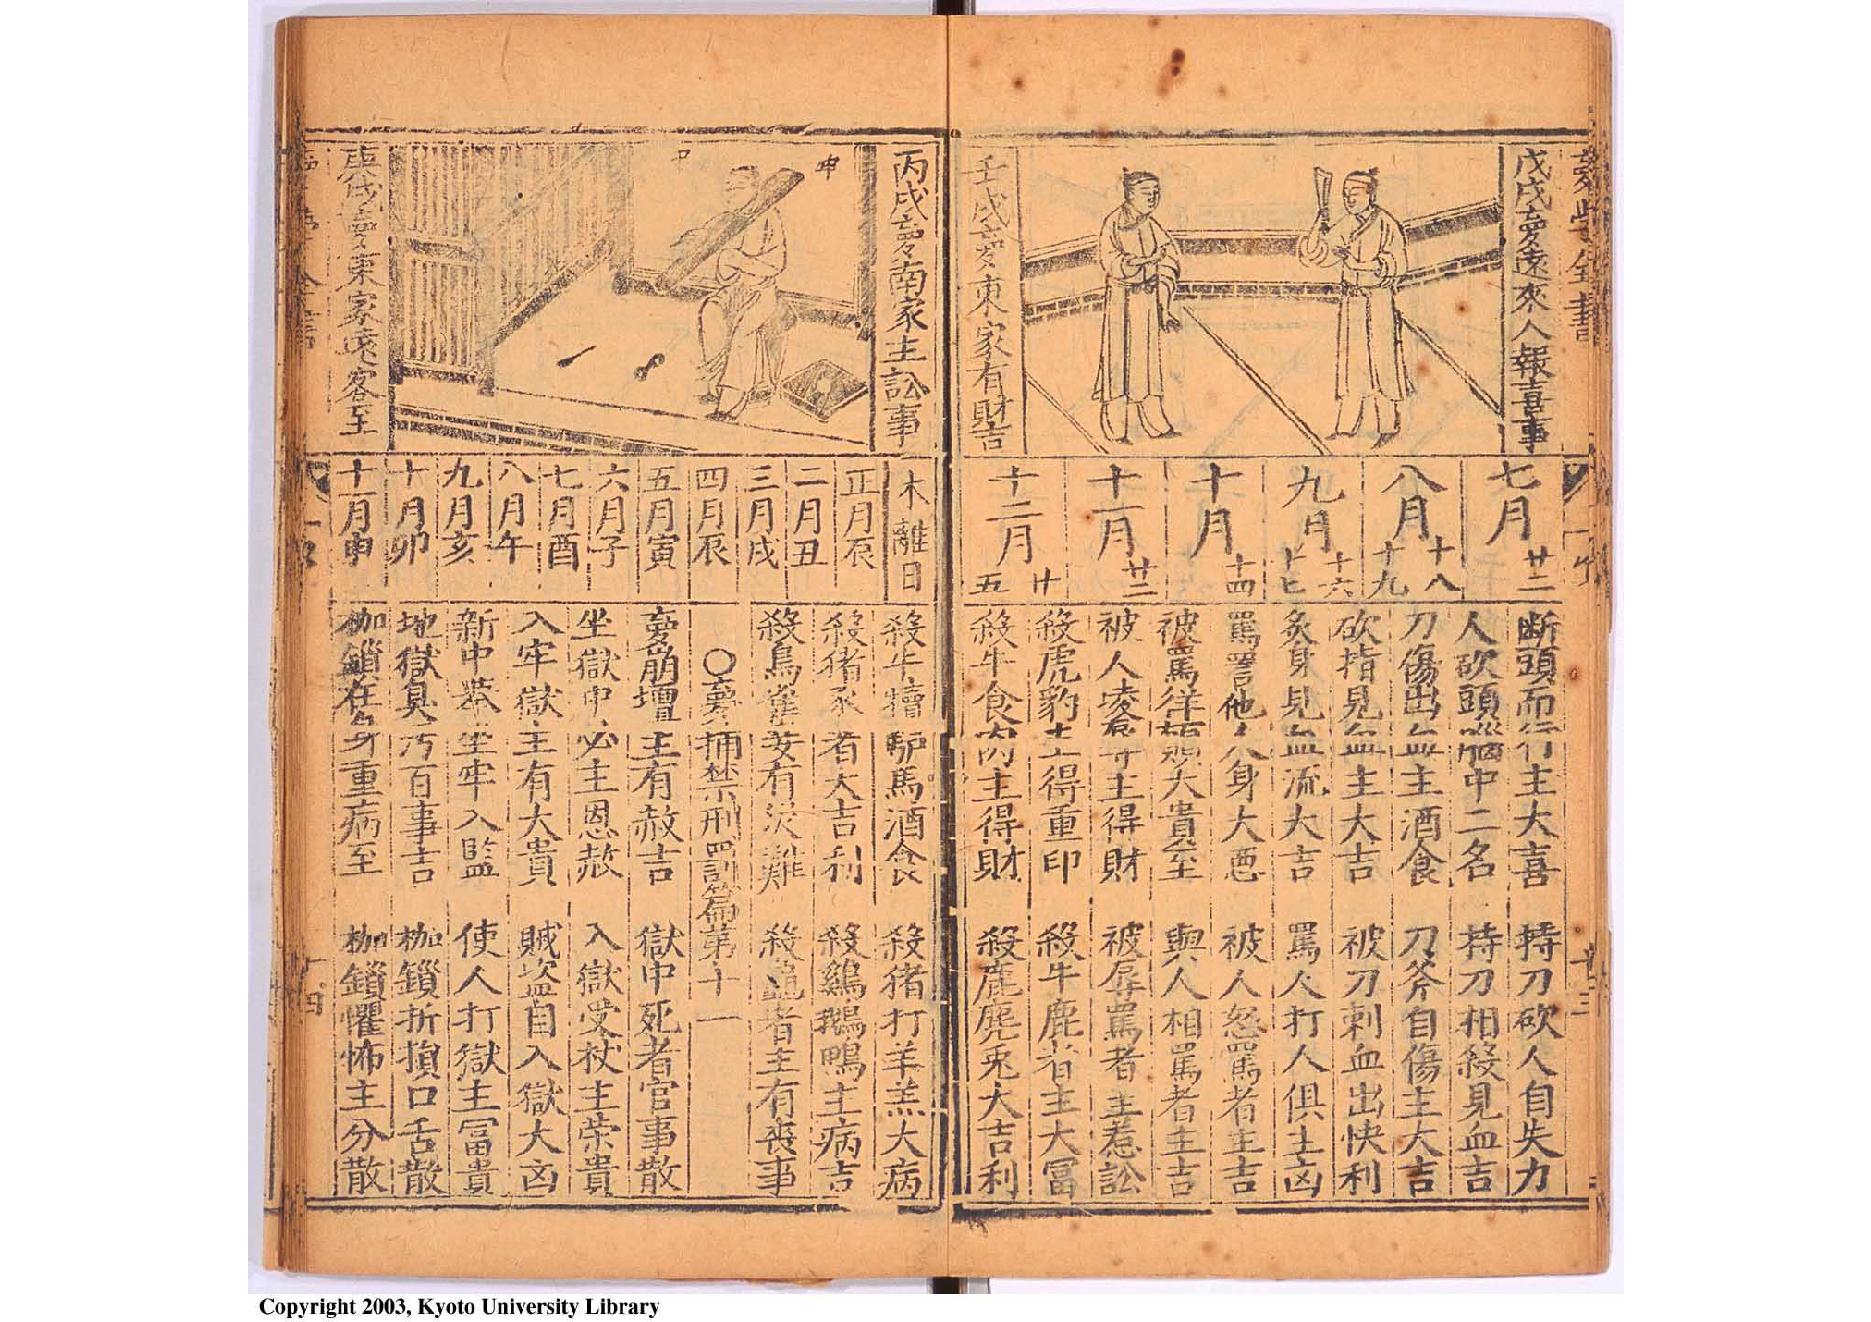 戊戌夣遠來人報喜事
壬戌夣東家有財吉
七月 廿二
八月 十八 十九
九月 十六 十七
十月 十四
十一月 廿二
十二月 廿 五
断頭而行主大喜 持刀砍人自失力
人砍頭腦中二名 持刀相殺見血吉
刀傷出血主酒食 刀斧自傷主大吉
砍指見血主大吉 被刀刺血出快利
炙身見血流大吉 罵人打人俱主凶
罵詈他人身大恶 被人怒罵者主吉
被罵徉 大貴至 與人相罵者主吉
被人凌辱主得財 被辱罵者主惹訟
殺虎豹主得重印 殺牛鹿者主大冨
殺牛食肉主得財 殺鹿麂兎大吉利
丙戌夣南家主訟事
庚戌夣東家遠客至
木離日
正月辰
二月丑
三月戌
四月辰
五月寅
六月子
七月酉
八月午
九月亥
十月卯
十一月申
殺牛犢馿馬酒食 殺猪打羊羔大病
殺猪豕者大吉利 殺鷄鵝鴨主病吉
殺鳥雀妾有災難 殺龜者主有喪事
○夣捕禁刑罰篇第十一
夣崩壇主有赦吉 獄中死者官事散
坐獄中必主恩赦 入獄受杖主荣貴
入牢獄主有大貴 賊盗自入獄大凶
新中 坐牢入監 使人打獄主冨貴
地獄臭汚百事吉 枷鎖折損口舌散
枷鎖在身重病至 枷鎖懼怖主分散
Copyright 2003, Kyoto University Library